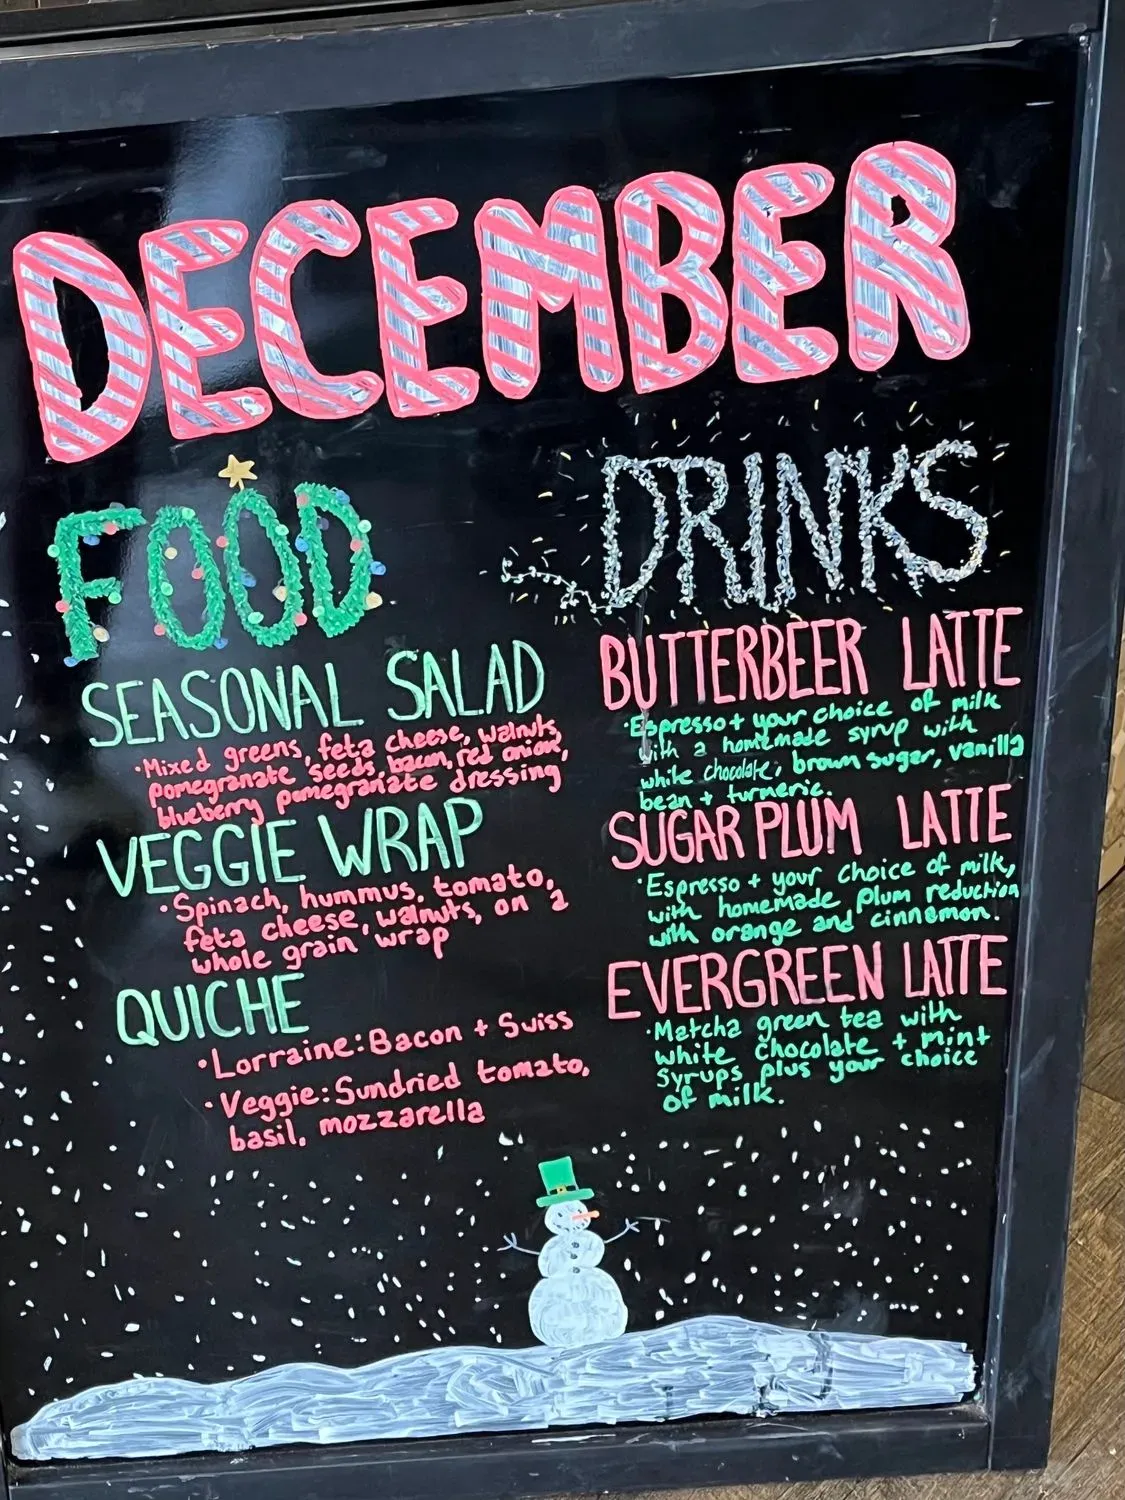 DECEMBER
FOOD
SEASONAL SALAD
·Mixed greens, feta cheese, walnuts,
pomegranate seeds, bacon, red onion,
blueberry pomegranate dressing
VEGGIE WRAP
·Spinach, hummus, tomato,
feta cheese, walnuts, on a
whole grain wrap
QUICHE
·Lorraine: Bacon + Swiss
·Veggie: Sundried tomato,
basil, mozzarella
DRINKS
BUTTERBEER LATTE
·Espresso + your choice of milk
with a homemade syrup with
white chocolate, brown sugar, vanilla
bean + turmeric.
SUGAR PLUM LATTE
·Espresso + your choice of milk,
with homemade plum reduction
with orange and cinnamon.
EVERGREEN LATTE
·Matcha green tea with
white chocolate + mint
syrups plus your choice
of milk.